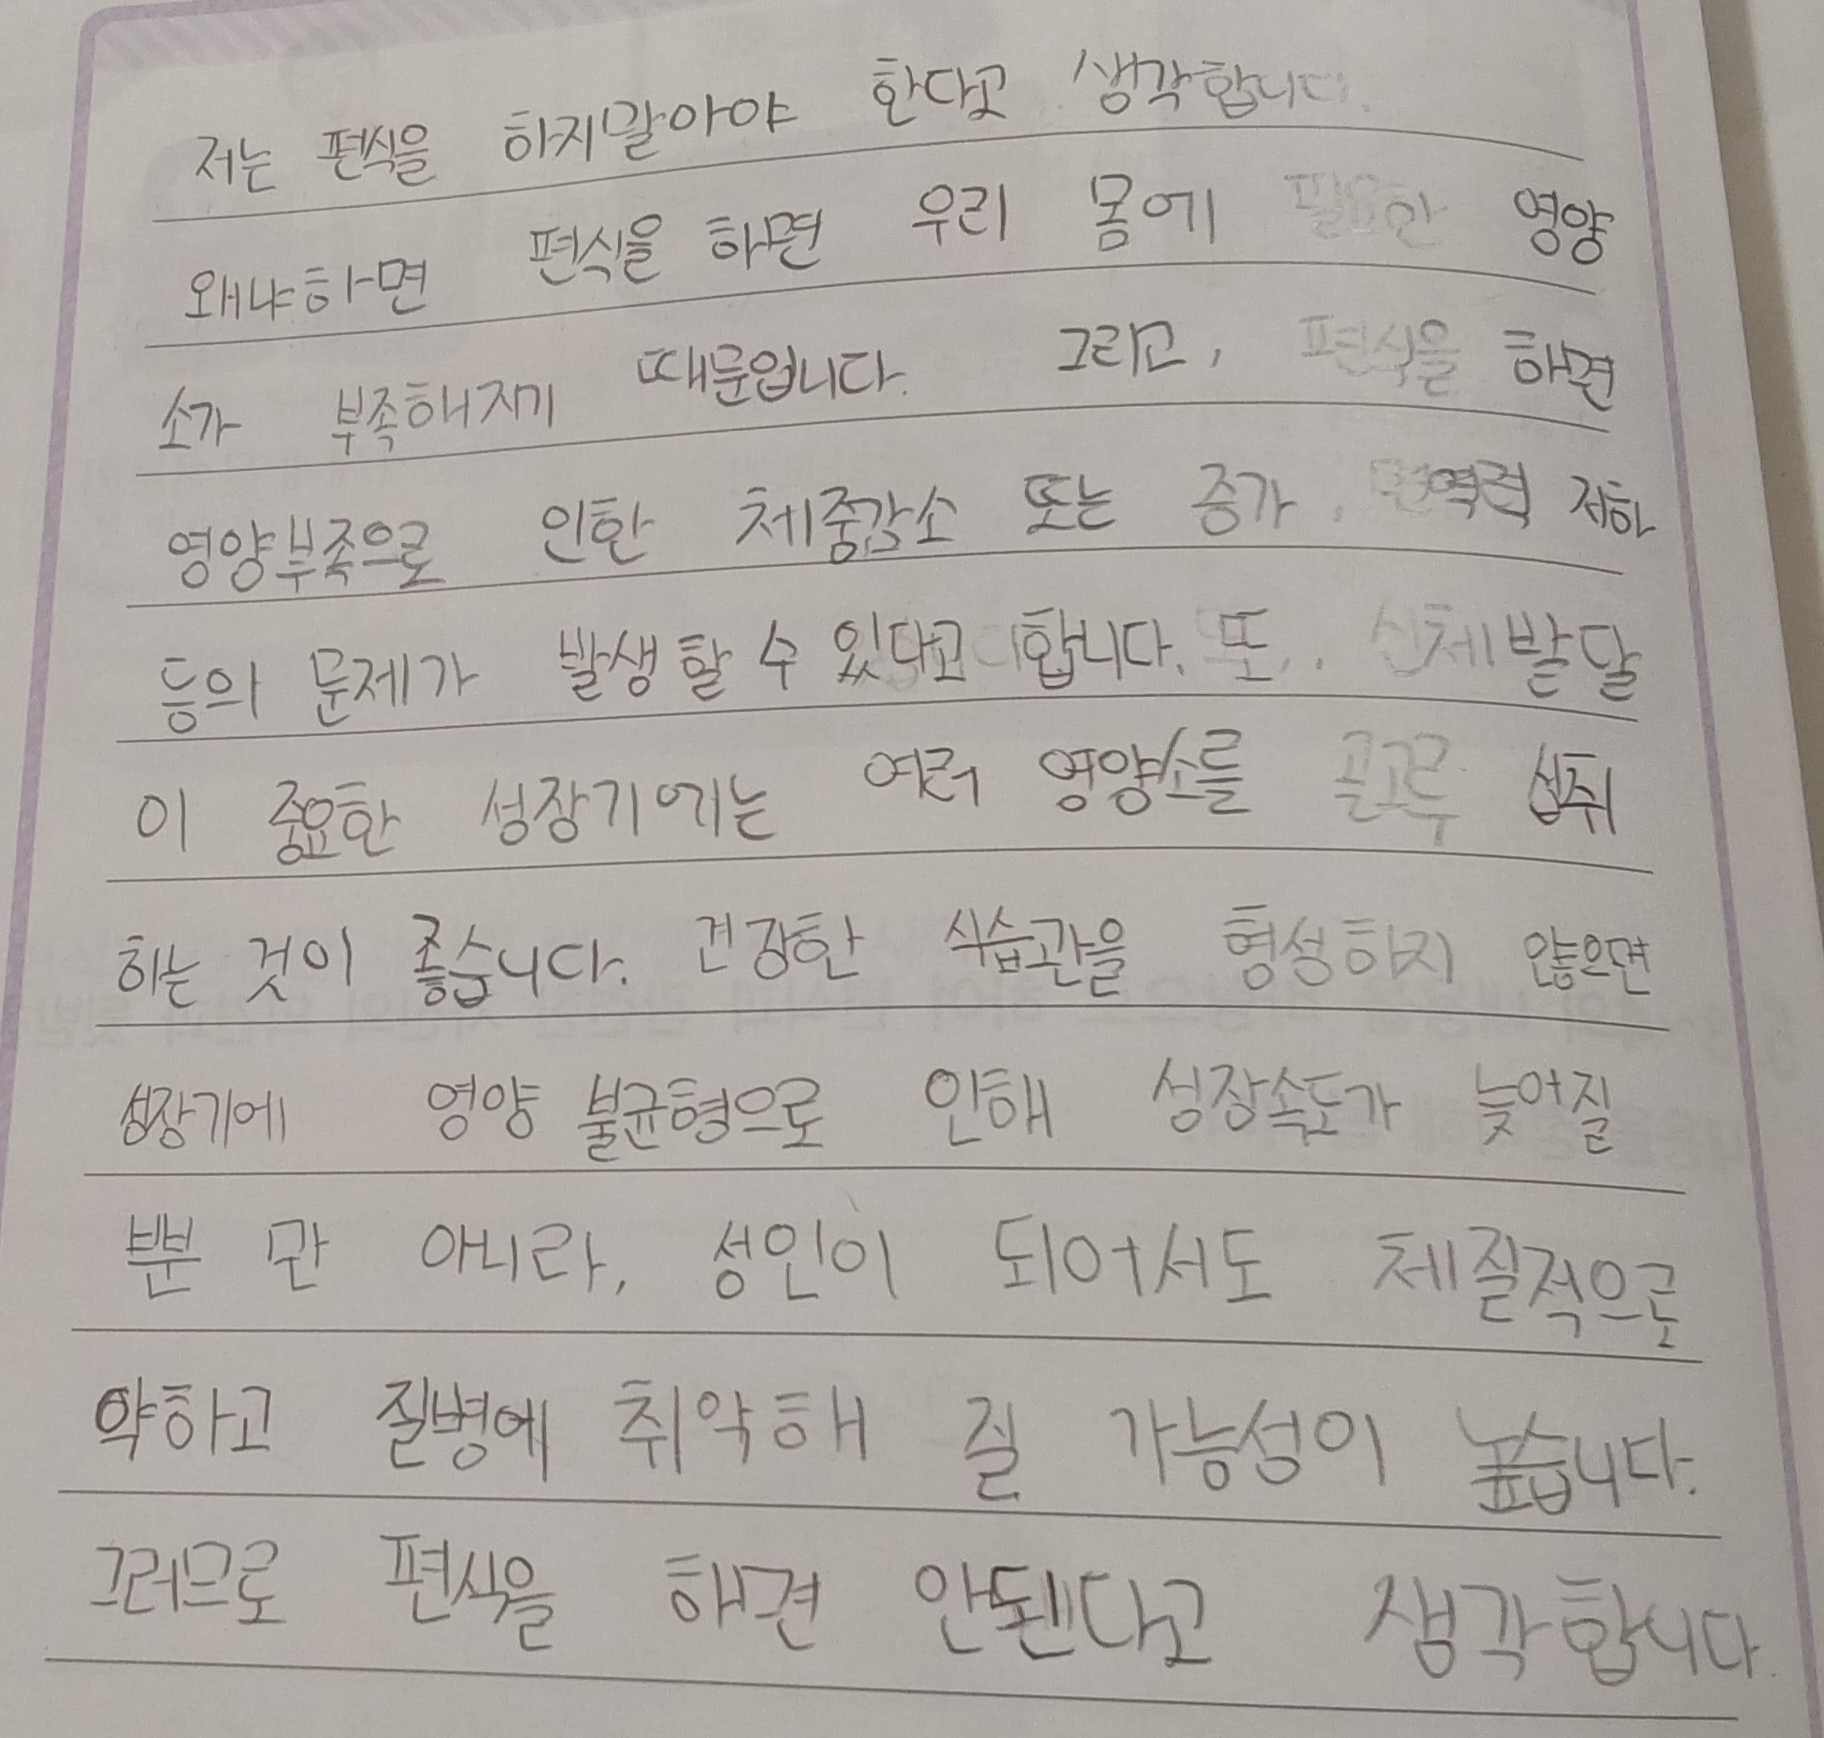 저는 편식을 하지말아야 한다고 생각합니다.
왜냐하면 편식을 하면 우리 몸에 필요한 영양
소가 부족해지기 때문입니다. 그리고, 편식을 하면
영양부족으로 인한 체중감소 또는 증가, 면역력 저하
등의 문제가 발생할 수 있다고 합니다. 또, 신체발달
이 중요한 성장기에는 여러 영양소를 골고루 섭취
하는 것이 좋습니다. 건강한 식습관을 형성하지 않으면
성장기에 영양 불균형으로 인해 성장속도가 늦어질
뿐 만 아니라, 성인이 되어서도 체질적으로
약하고 질병에 취약해 질 가능성이 높습니다.
그러므로 편식을 하면 안된다고 생각합니다.